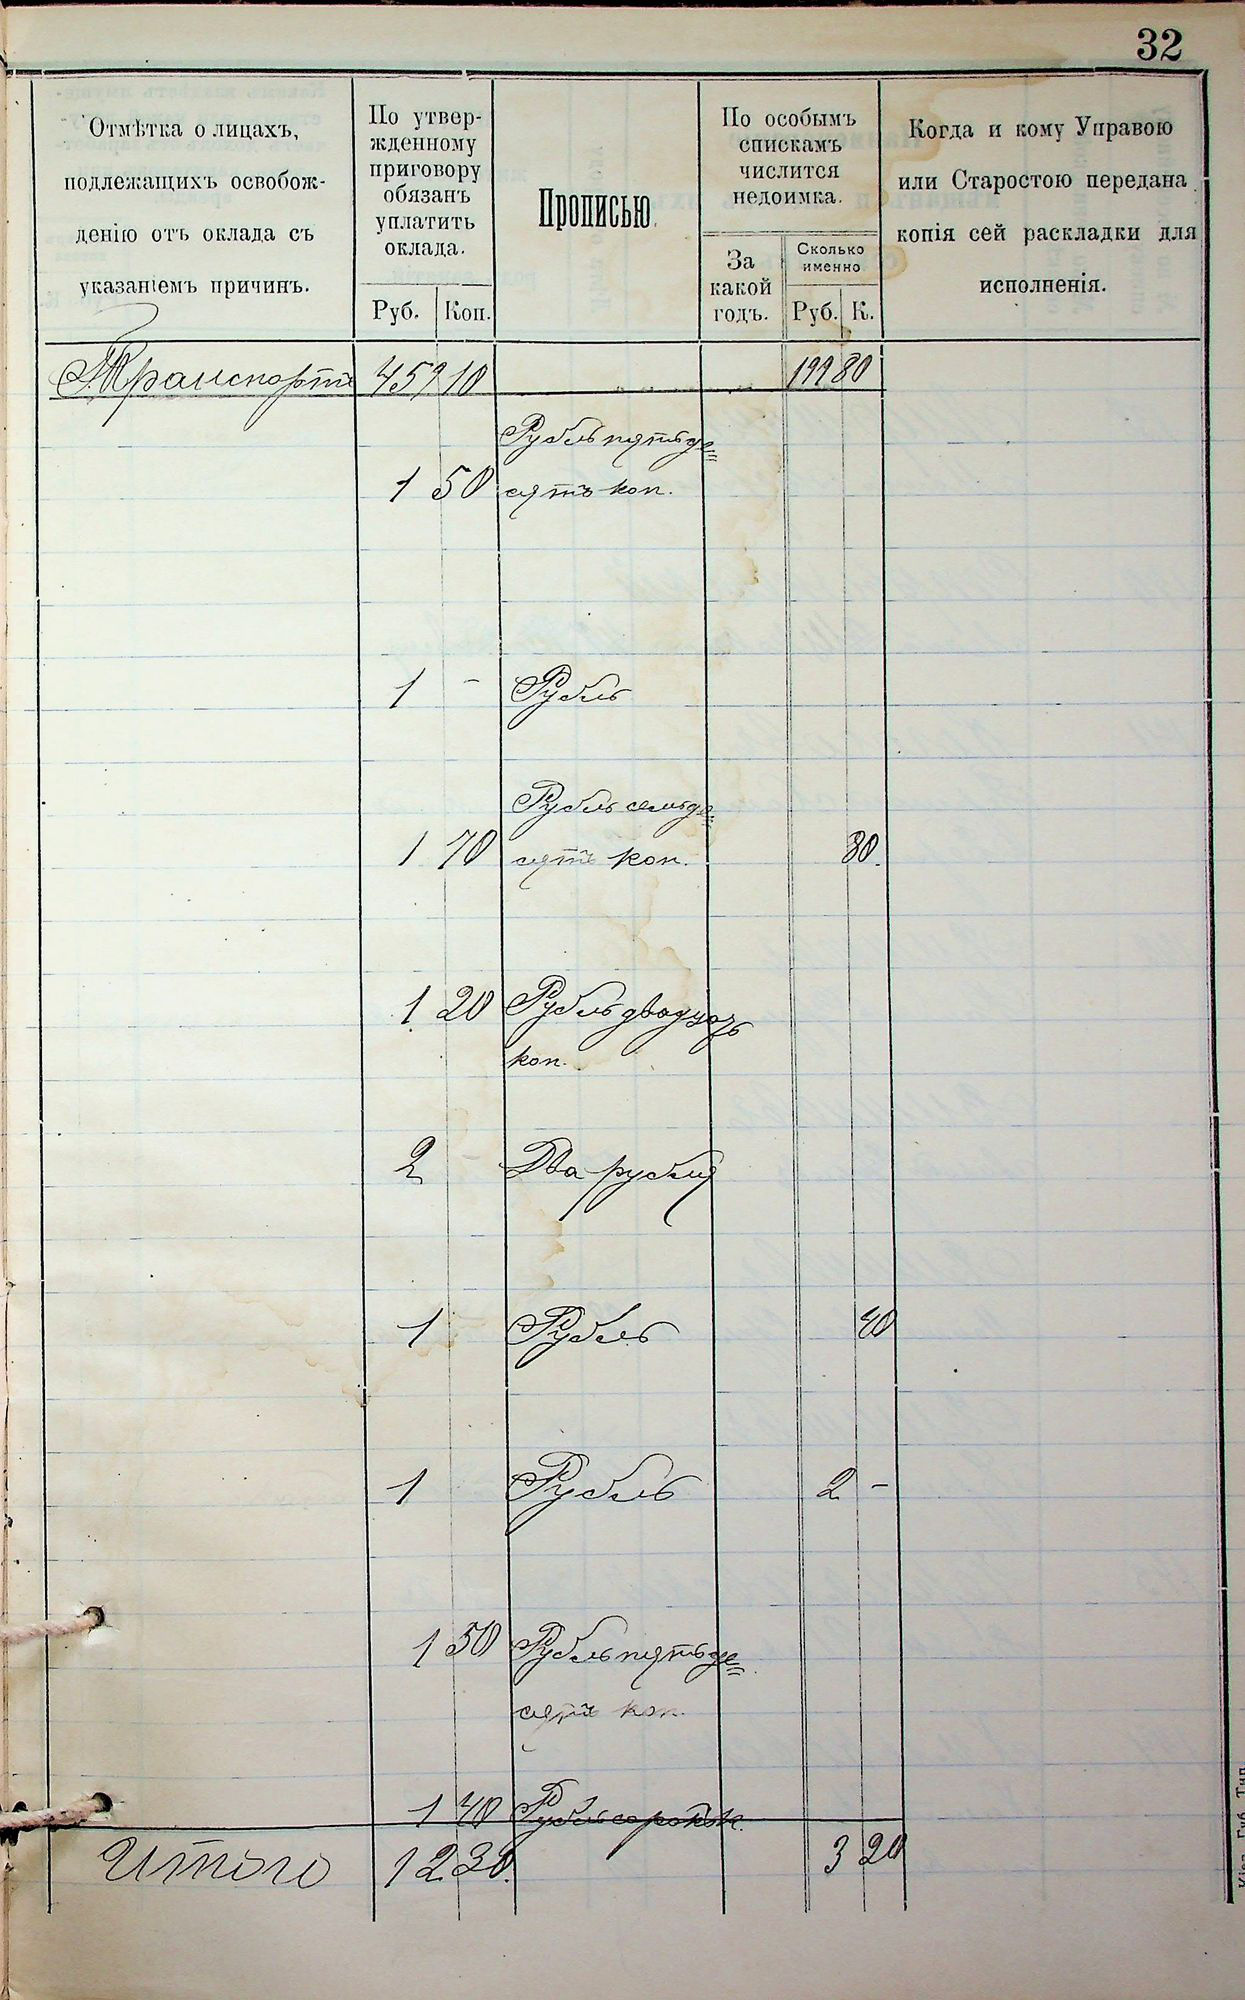 32
Отмѣтка о лицахъ,
подлежащихъ освобож-
денію отъ оклада съ
указаніемъ причинъ.
По утвер-
жденному
приговору
обязанъ
уплатить
оклада.
Руб. Коп.
Прописью.
По особымъ
спискамъ
числится
недоимка.
За
какой
годъ.
Сколько
именно
Руб. К.
Когда и кому Управою
или Старостою передана
копія сей раскладки для
исполненія.
Транспортъ 459 10 199 80
Рубль пятьде=
1 50 сятъ коп.
1 - Рубль
Рубль семьде=
1 70 сятъ коп. 80.
1 20 Рубль двадцать
коп.
2 Два рубля
1 Рубль 40
1 Рубль 2 -
1 50 Рубль пятьде=
сятъ коп.
1 40 Рубль сорокъ к.
Итого 12 30. 3 20
Кіев. Губ. Тип.